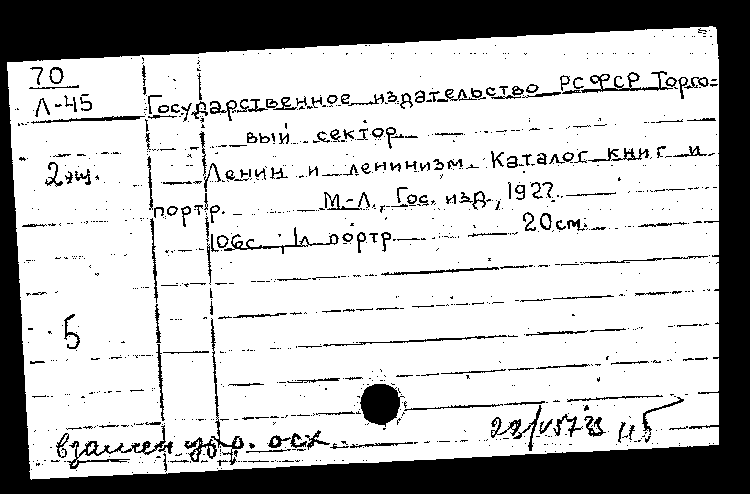 70
Л-45
Государственное издательство РСФСР Торго=
вый сектор.
2 экз.
Ленин и ленинизм. Каталог книг и
портр. М.-Л., Гос. изд., 1927.
106с., 1л портр. 20см.
5
взамен